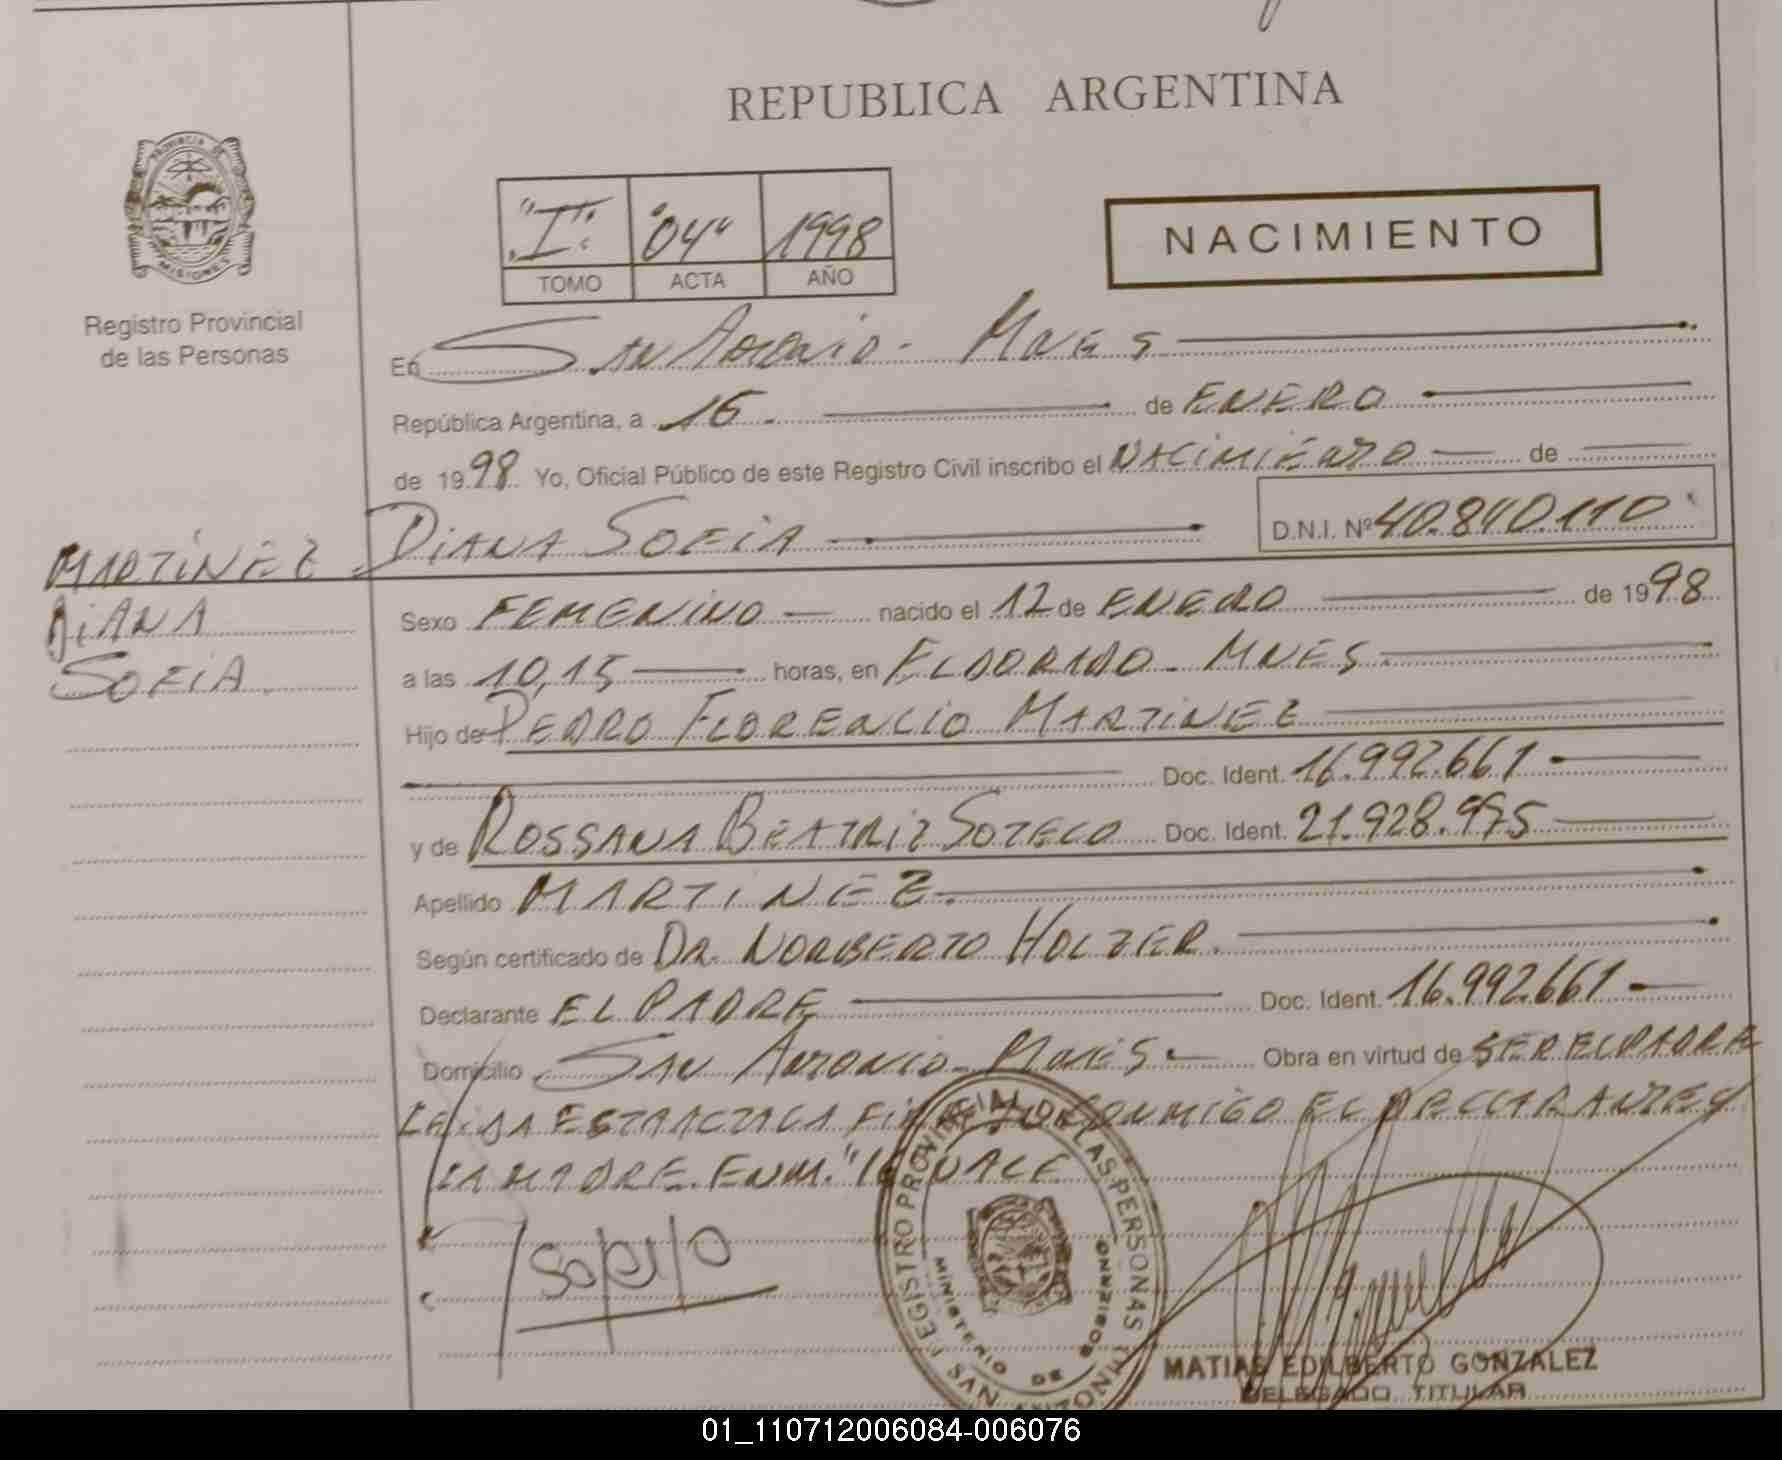 REPUBLICA ARGENTINA
PROVINCIA DE
MISIONES
Registro Provincial
de las Personas
"I" "04" 1998
TOMO ACTA AÑO
NACIMIENTO
En San Antonio - Mnes
República Argentina, a 16 de ENERO
de 1998 Yo, Oficial Público de este Registro Civil inscribo el NACIMIENTO de
DIANA SOFIA D.N.I. Nº 40.840.110
MARTINEZ
DIANA
SOFIA
Sexo FEMENINO nacido el 12 de ENERO de 1998
a las 10,15 horas, en ELDORADO - MNES
Hijo de PEDRO FLORENCIO MARTINEZ
Doc. Ident. 16.992.661
y de ROSSANA BEATRIZ SOTELO Doc. Ident. 21.928.975
Apellido MARTINEZ
Según certificado de DR. NORBERTO HOLZER.
Declarante EL PADRE Doc. Ident. 16.992.661
Domicilio SAN ANTONIO - Mnes Obra en virtud de SER EL PADRE
LEIDA ESTA ACTA LA FIRMAN CONMIGO EL DECLARANTE Y
LA MADRE. ENM. "16" VALE
REGISTRO PROVINCIAL DE LAS PERSONAS
MINISTERIO DE GOBIERNO
MATIAS EDILBERTO GONZALEZ
DELEGADO TITULAR
01_110712006084-006076